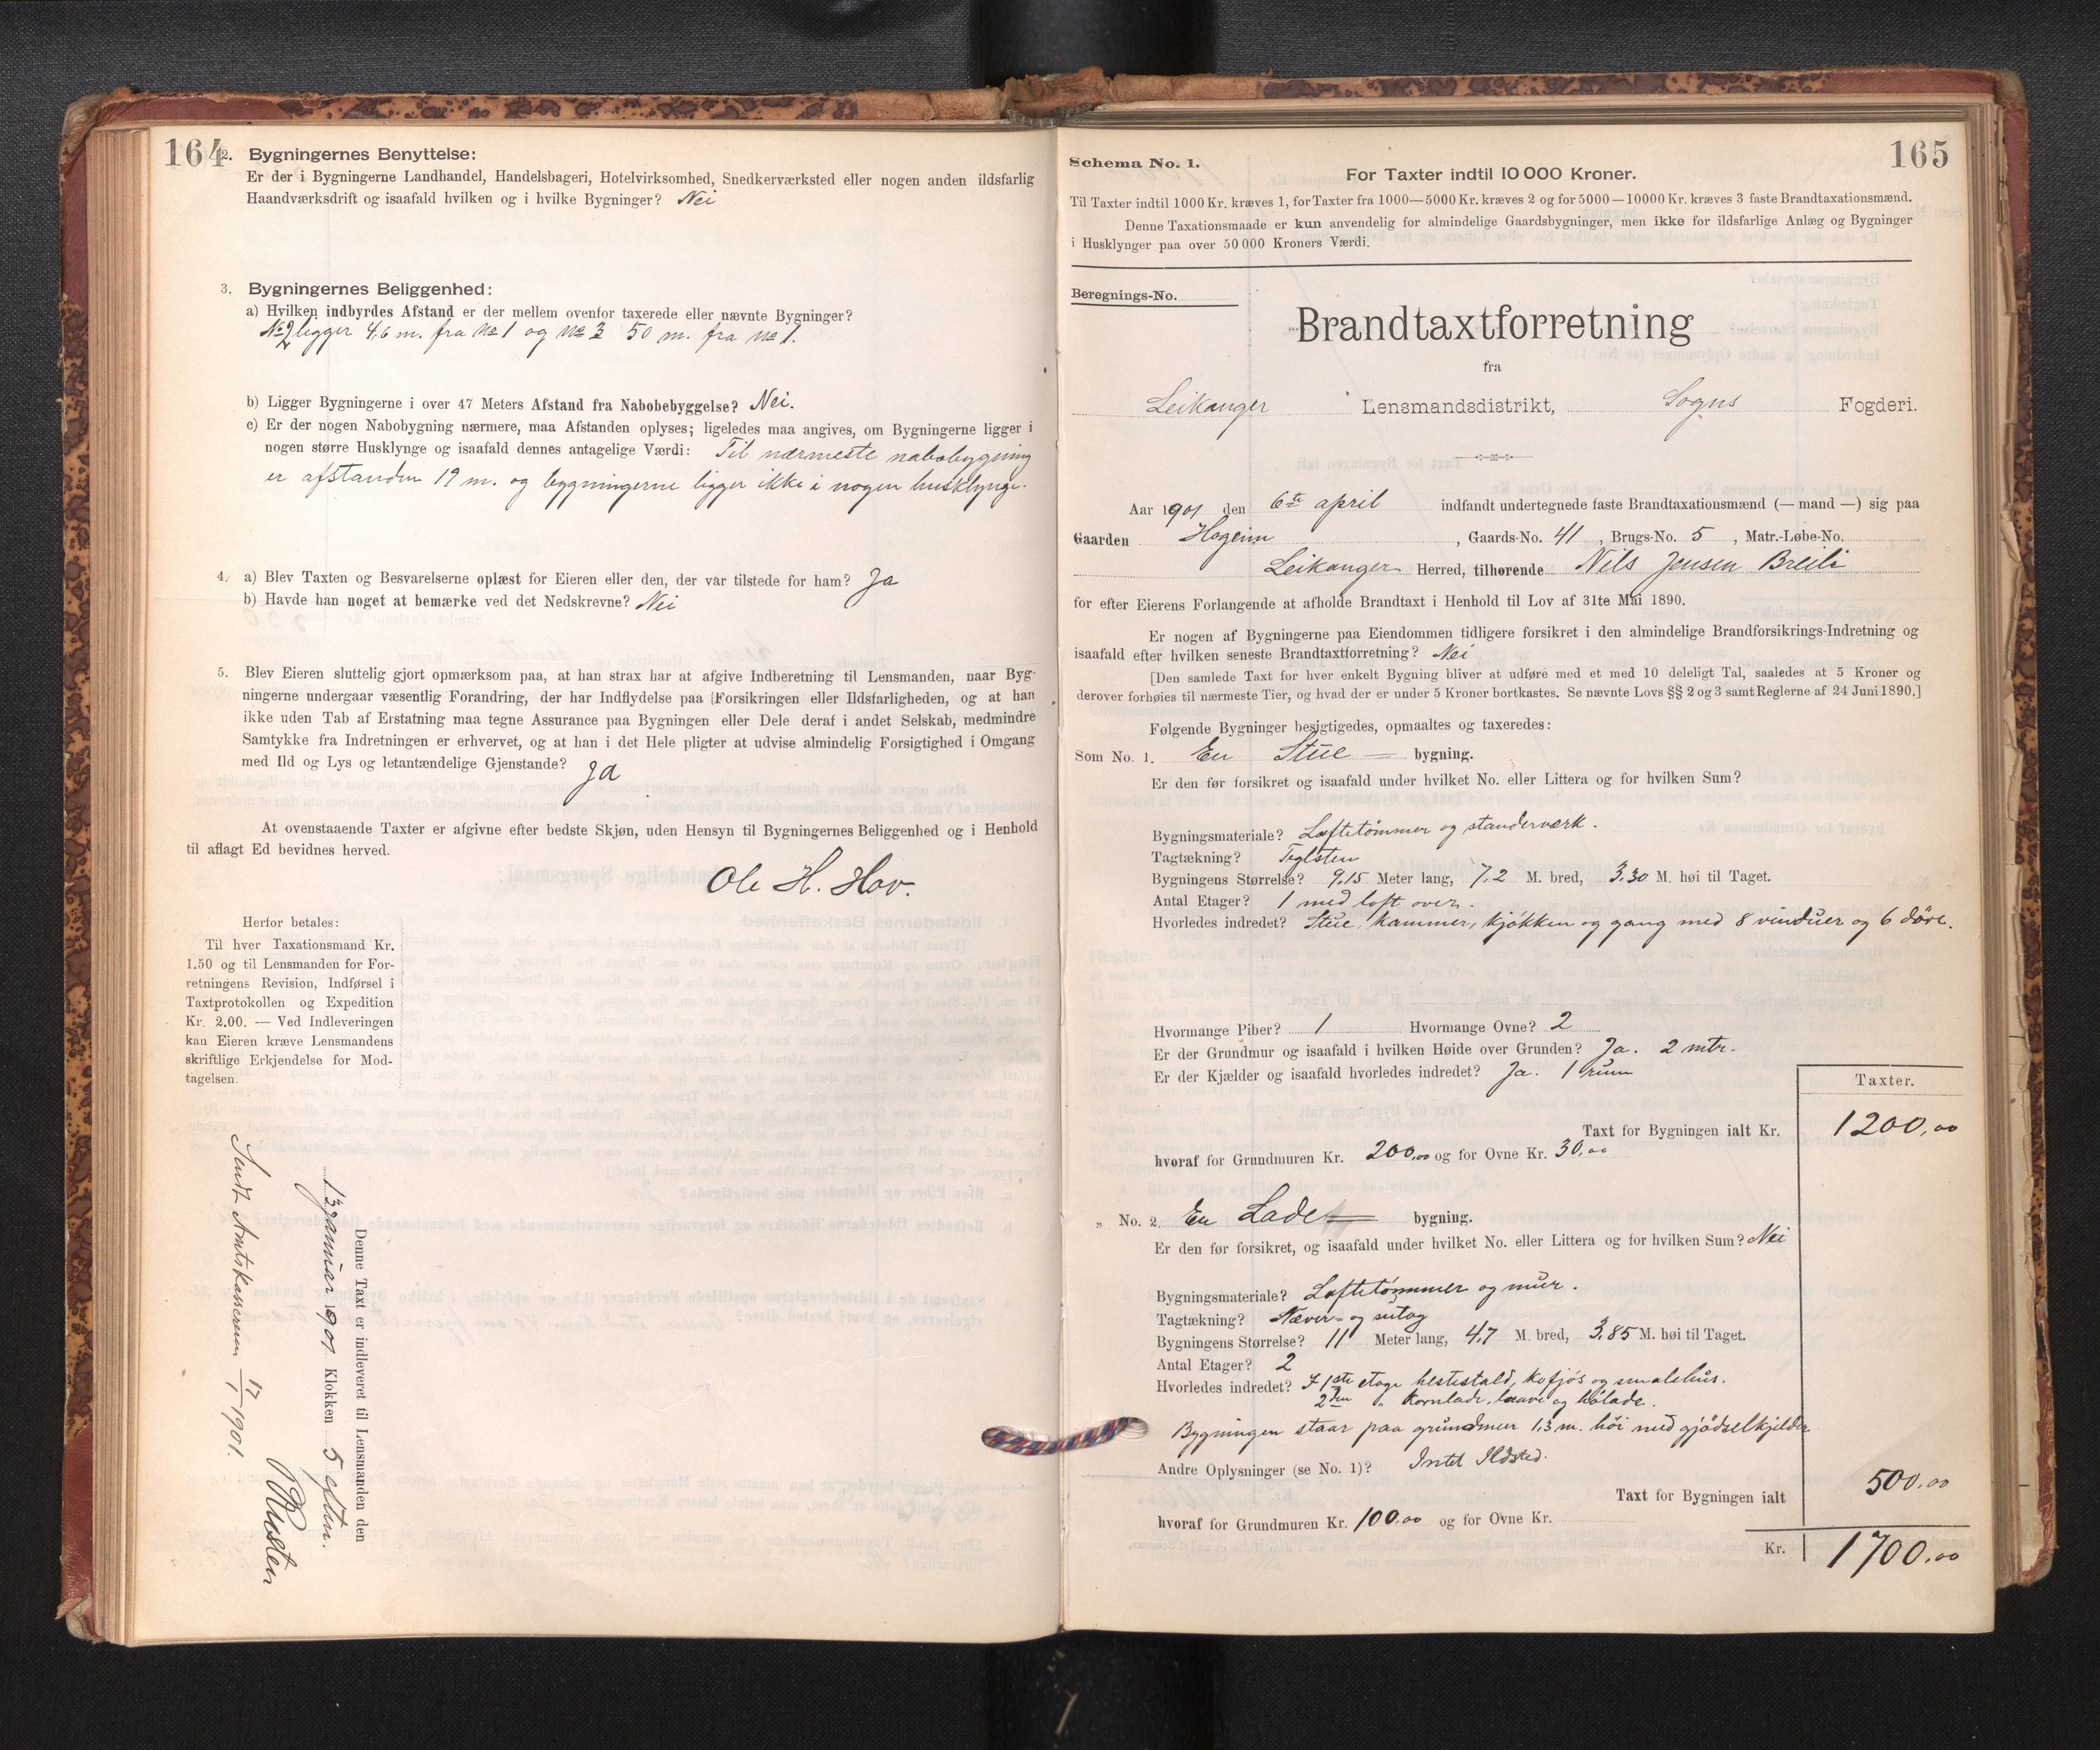 164
2. Bygningernes Benyttelse:
Er der i Bygningerne Landhandel, Handelsbageri, Hotelvirksomhed, Snedkerværksted eller nogen anden ildsfarlig
Haandværksdrift og isaafald hvilken og i hvilke Bygninger? Nei
3. Bygningernes Beliggenhed:
a) Hvilken indbyrdes Afstand er der mellem ovenfor taxerede eller nævnte Bygninger?
No 2 ligger 46 m. fra no 1 og no 3 50 m. fra no 1.
b) Ligger Bygningerne i over 47 Meters Afstand fra Nabobebyggelse? Nei.
c) Er der nogen Nabobygning nærmere, maa Afstanden oplyses; ligeledes maa angives, om Bygningerne ligger i
nogen større Husklynge og isaafald dennes antagelige Værdi: Til nærmeste nabobygning
er afstanden 19 m. og bygningerne ligger ikke i nogen husklynge.
4. a) Blev Taxten og Besvarelserne oplæst for Eieren eller den, der var tilstede for ham? Ja
b) Havde han noget at bemærke ved det Nedskrevne? Nei
5. Blev Eieren sluttelig gjort opmærksom paa, at han strax har at afgive Indberetning til Lensmanden, naar Byg-
ningerne undergaar væsentlig Forandring, der har Indflydelse paa Forsikringen eller Ildsfarligheden, og at han
ikke uden Tab af Erstatning maa tegne Assurance paa Bygningen eller Dele deraf i andet Selskab, medmindre
Samtykke fra Indretningen er erhvervet, og at han i det Hele pligter at udvise almindelig Forsigtighed i Omgang
med Ild og Lys og letantændelige Gjenstande? Ja
At ovenstaaende Taxter er afgivne efter bedste Skjøn, uden Hensyn til Bygningernes Beliggenhed og i Henhold
til aflagt Ed bevidnes herved.
Ole H. Hov.
Herfor betales:
Til hver Taxationsmand Kr.
1.50 og til Lensmanden for For-
retningens Revision, Indførsel i
Taxtprotokollen og Expedition
Kr. 2.00. — Ved Indleveringen
kan Eieren kræve Lensmandens
skriftlige Erkjendelse for Mod-
tagelsen.
Denne Taxt er indleveret til Lensmanden den
13 januar 1901 Klokken 5 eftm.
Sendt Amtskasseren 17/1 1901.
165
Schema No. 1.
For Taxter indtil 10 000 Kroner.
Til Taxter indtil 1000 Kr. kræves 1, for Taxter fra 1000—5000 Kr. kræves 2 og for 5000—10000 Kr. kræves 3 faste Brandtaxationsmænd.
Denne Taxationsmaade er kun anvendelig for almindelige Gaardsbygninger, men ikke for ildsfarlige Anlæg og Bygninger
i Husklynger paa over 50 000 Kroners Værdi.
Beregnings-No.
Brandtaxtforretning
fra
Leikanger Lensmandsdistrikt, Sogns Fogderi.
Aar 1901 den 6te april indfandt undertegnede faste Brandtaxationsmænd (— mand —) sig paa
Gaarden Hageim, Gaards-No. 41, Brugs-No. 5, Matr.-Løbe-No.
Leikanger Herred, tilhørende Nils Jensen Breili
for efter Eierens Forlangende at afholde Brandtaxt i Henhold til Lov af 31te Mai 1890.
Er nogen af Bygningerne paa Eiendommen tidligere forsikret i den almindelige Brandforsikrings-Indretning og
isaafald efter hvilken seneste Brandtaxtforretning? Nei
[Den samlede Taxt for hver enkelt Bygning bliver at udføre med et med 10 deleligt Tal, saaledes at 5 Kroner og
derover forhøies til nærmeste Tier, og hvad der er under 5 Kroner bortkastes. Se nævnte Lovs §§ 2 og 3 samt Reglerne af 24 Juni 1890.]
Følgende Bygninger besigtigedes, opmaaltes og taxeredes:
Som No. 1. En Stue bygning.
Er den før forsikret og isaafald under hvilket No. eller Littera og for hvilken Sum?
Bygningsmateriale? Loftetømmer og standerværk.
Tagtækning? Teglsten
Bygningens Størrelse? 9.15 Meter lang, 7.2 M. bred, 3.30 M. høi til Taget.
Antal Etager? 1 med loft over.
Hvorledes indredet? Stue, kammer, kjøkken og gang med 8 vinduer og 6 døre.
Hvormange Piber? 1 Hvormange Ovne? 2
Er der Grundmur og isaafald i hvilken Høide over Grunden? Ja. 2 mtr.
Er der Kjælder og isaafald hvorledes indredet? Ja. 1 rum
Taxter.
Taxt for Bygningen ialt Kr. 1200,00
hvoraf for Grundmuren Kr. 200,00 og for Ovne Kr. 30,00
" No. 2. En Lade bygning.
Er den før forsikret, og isaafald under hvilket No. eller Littera og for hvilken Sum? Nei
Bygningsmateriale? Loftetømmer og mur.
Tagtækning? Næver- og sutag
Bygningens Størrelse? 11 Meter lang, 4.7 M. bred, 3.85 M. høi til Taget.
Antal Etager? 2
Hvorledes indredet? I 1ste etage hestestald, kofjøs og smalehus.
2den " kornlade, laave og hølade.
Bygningen staar paa grundmur 1.3 m. høi med gjødselkjelder
Andre Oplysninger (se No. 1)? Intet Ildsted.
Taxt for Bygningen ialt 500,00
hvoraf for Grundmuren Kr. 100,00 og for Ovne Kr.
Kr. 1700,00